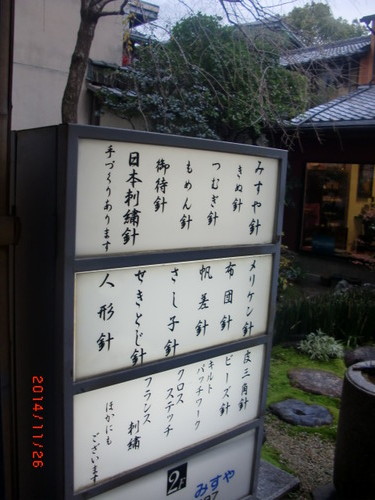 みすや針
きぬ針
つむぎ針
もめん針
御待針
日本刺繍針
手づくりあります
メリケン針
布団針
帆差針
さし子針
せきとじ針
人形針
皮三角針
ビーズ針
キルト
パッチワーク
クロス
ステッチ
フランス
刺繍
ほかにも
ございます
2F
みすや
2014/11/26